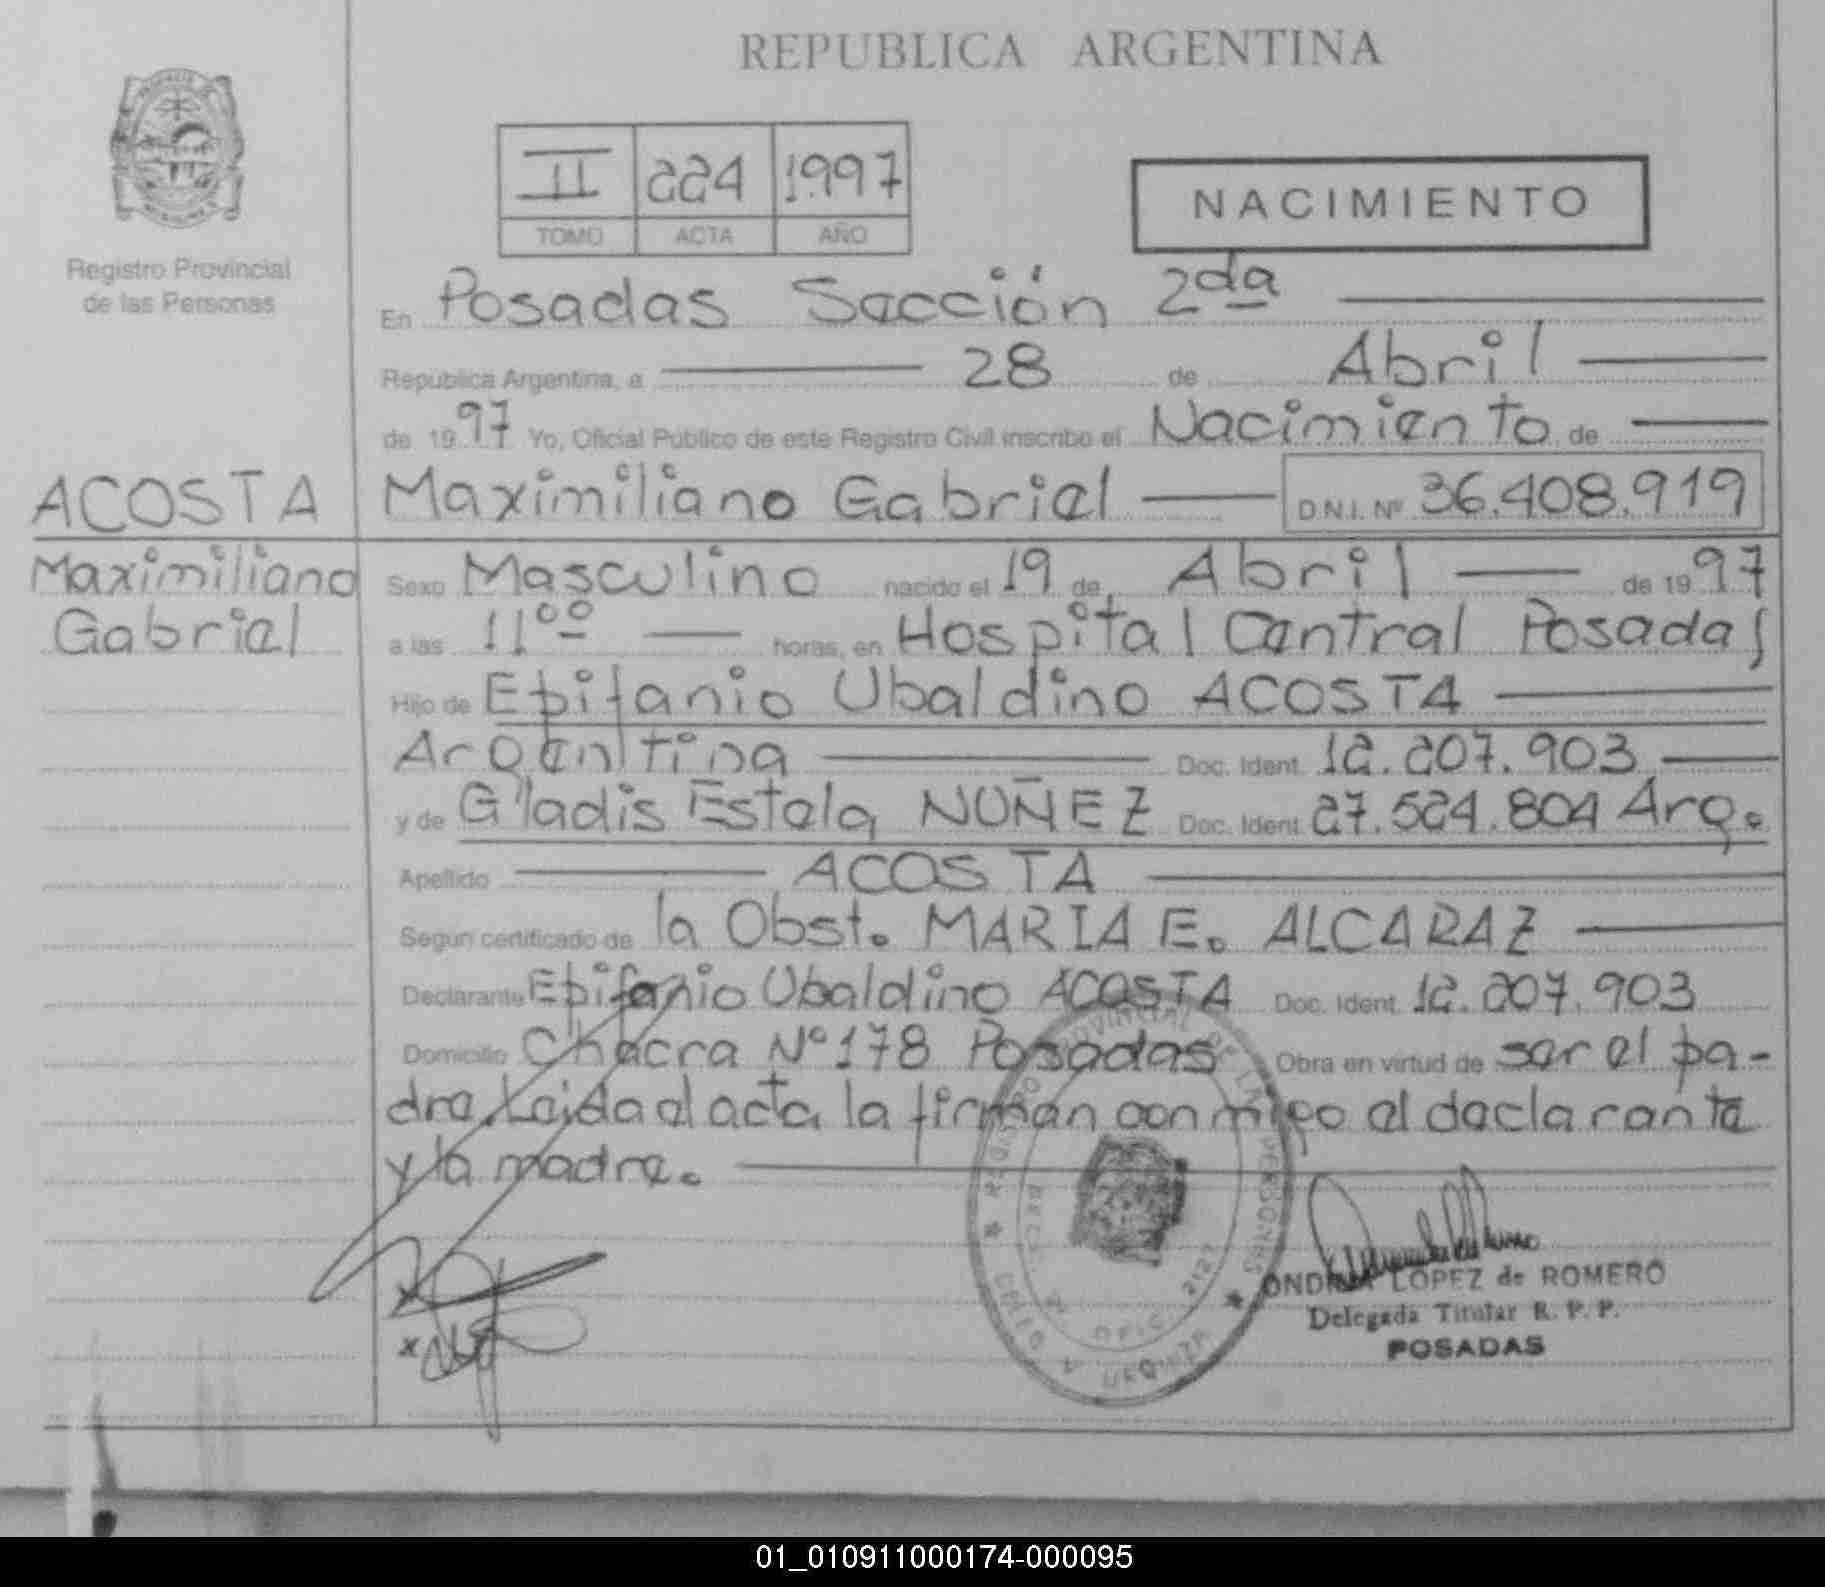 REPUBLICA ARGENTINA
II 224 1997
TOMO ACTA AÑO
NACIMIENTO
Registro Provincial
de las Personas
En Posadas Sección 2da
Republica Argentina, a 28 de Abril
de 1997 Yo, Oficial Publico de este Registro Civil inscribo el Nacimiento de
ACOSTA
Maximiliano
Gabriel
Maximiliano Gabriel D.N.I. Nº 36.408.919
Sexo Masculino nacido el 19 de Abril de 1997
a las 11ºº horas, en Hospital Central Posadas
Hijo de Epifanio Ubaldino ACOSTA
Argentina Doc. Ident. 12.207.903
y de Gladis Estela NUÑEZ Doc. Ident. 27.524.804 Arg.
Apellido ACOSTA
Segun certificado de la Obst. MARIA E. ALCARAZ
Declarante Epifanio Ubaldino ACOSTA Doc. Ident. 12.207.903
Domicilio Chacra Nº 178 Posadas Obra en virtud de ser el pa-
dre. Leida el acta la firman con migo el declarante
y la madre.
ONDINA LOPEZ de ROMERO
Delegada Titular R. P. P.
POSADAS
01_010911000174-000095